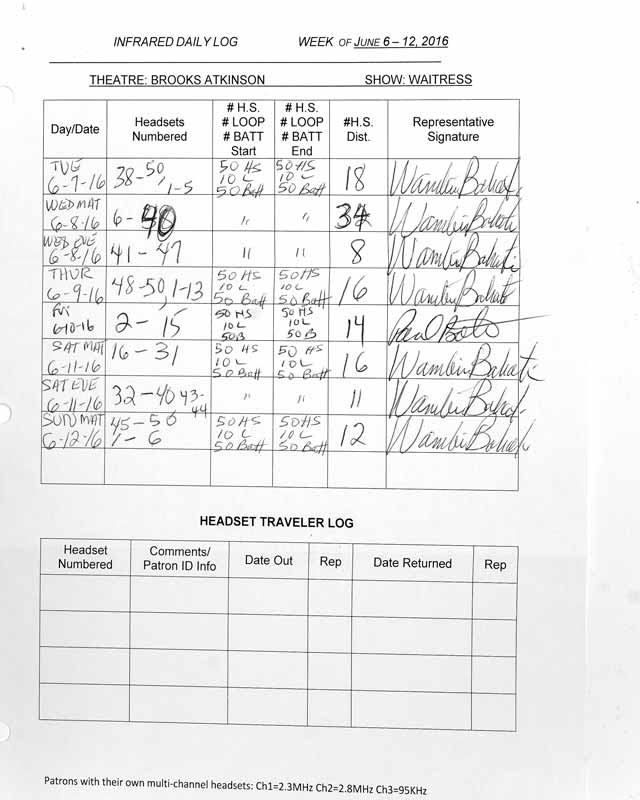 INFRARED DAILY LOG WEEK OF JUNE 6 – 12, 2016
THEATRE: BROOKS ATKINSON SHOW: WAITRESS
Day/Date Headsets Numbered # H.S. # LOOP # BATT Start # H.S. # LOOP # BATT End #H.S. Dist. Representative Signature
TUE 6-7-16 38-50, 1-5 50 HS 10 L 50 Batt 50 HS 10 L 50 Batt 18
WED MAT 6-8-16 6-40 " " 34
WED EVE 6-8-16 41-47 " " 8
THUR 6-9-16 48-50, 1-13 50 HS 10 L 50 Batt 50 HS 10 L 50 Batt 16
Fri 6-10-16 2-15 50 HS 10 L 50 B 50 HS 10 L 50 B 14
SAT MAT 6-11-16 16-31 50 HS 10 L 50 Batt 50 HS 10 L 50 Batt 16
SAT EVE 6-11-16 32-40 43-44 " " 11
SUN MAT 6-12-16 45-50 1-6 50 HS 10 L 50 Batt 50 HS 10 L 50 Batt 12
HEADSET TRAVELER LOG
Headset Numbered Comments/ Patron ID Info Date Out Rep Date Returned Rep
Patrons with their own multi-channel headsets: Ch1=2.3MHz Ch2=2.8MHz Ch3=95KHz